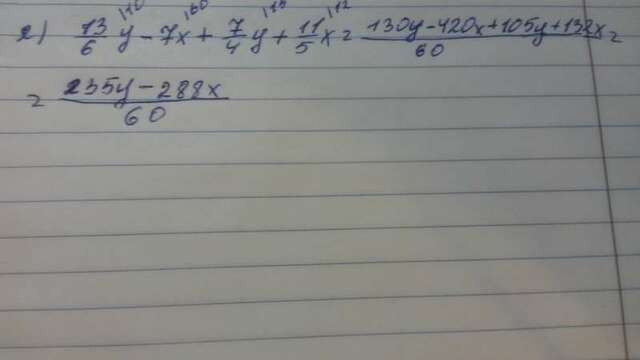 e) 13/6 y - 7x + 7/4 y + 11/5 x = (130y - 420x + 105y + 132x)/60 =
= (235y - 288x)/60